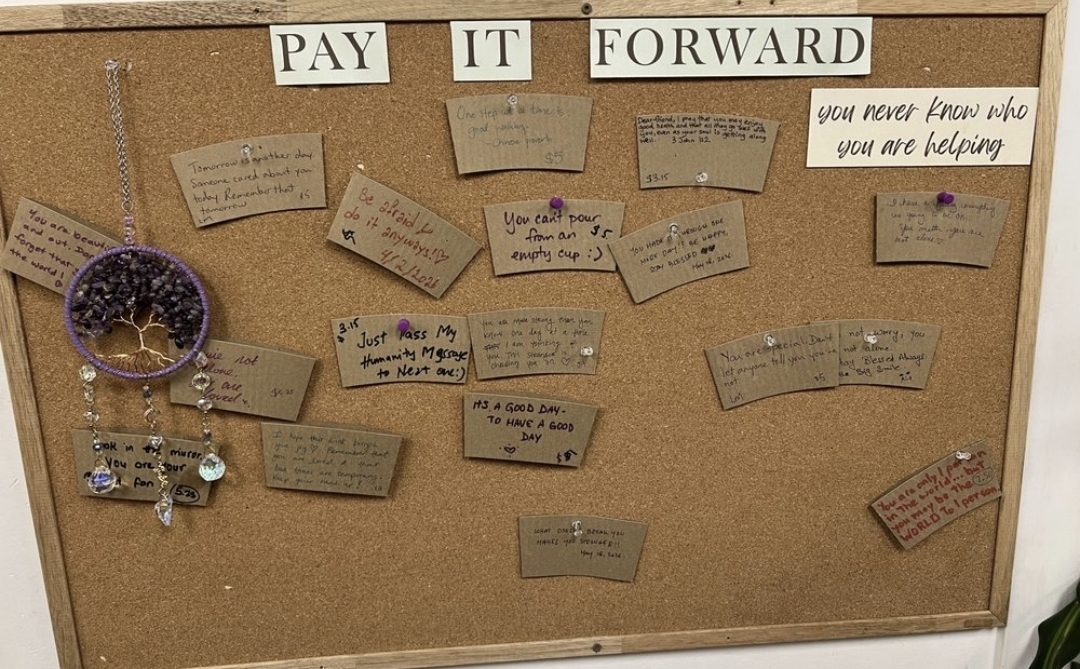 PAY IT FORWARD
you never know who
you are helping
One step at a time is
good walking.
Chinese proverb
$5
Dear friend, I pray that you may enjoy
good health and that all may go well with
you, even as your soul is getting along
well. 3 John 1:2
$3.15
Tomorrow is another day.
Someone cared about you
today. Remember that
tomorrow
$5
Be afraid &
do it anyways!!♡
4/2/2026
You can't pour
from an $5
empty cup :)
YOU MADE
DAY! BE HAPPY.
STAY BLESSED
May 16, 2026
I have
You matter. you are
not alone ♡
You are beau
and out. Do
forget that
the world!
not
one.
are
loved
$3.15
Just Pass My
Humanity Message
to Next one:)
You are more strong than you
know. one day at a time.
I am
You are special. Don't
let anyone tell you you're
not
$5
not worry, you
not alone.
Blessed Always
Big Smile
IT'S A GOOD DAY-
TO HAVE A GOOD
DAY
OK in the mirror
You are your
fan
5.25
I hope this drink brings
you joy ♡ Remember that
you are loved &
Keep your head up!
You are only 1 person
in the world... but
you may be the
WORLD to 1 person
WHAT DOESN'T BREAK YOU
MAKES YOU STRONGER!!
May 16, 2026